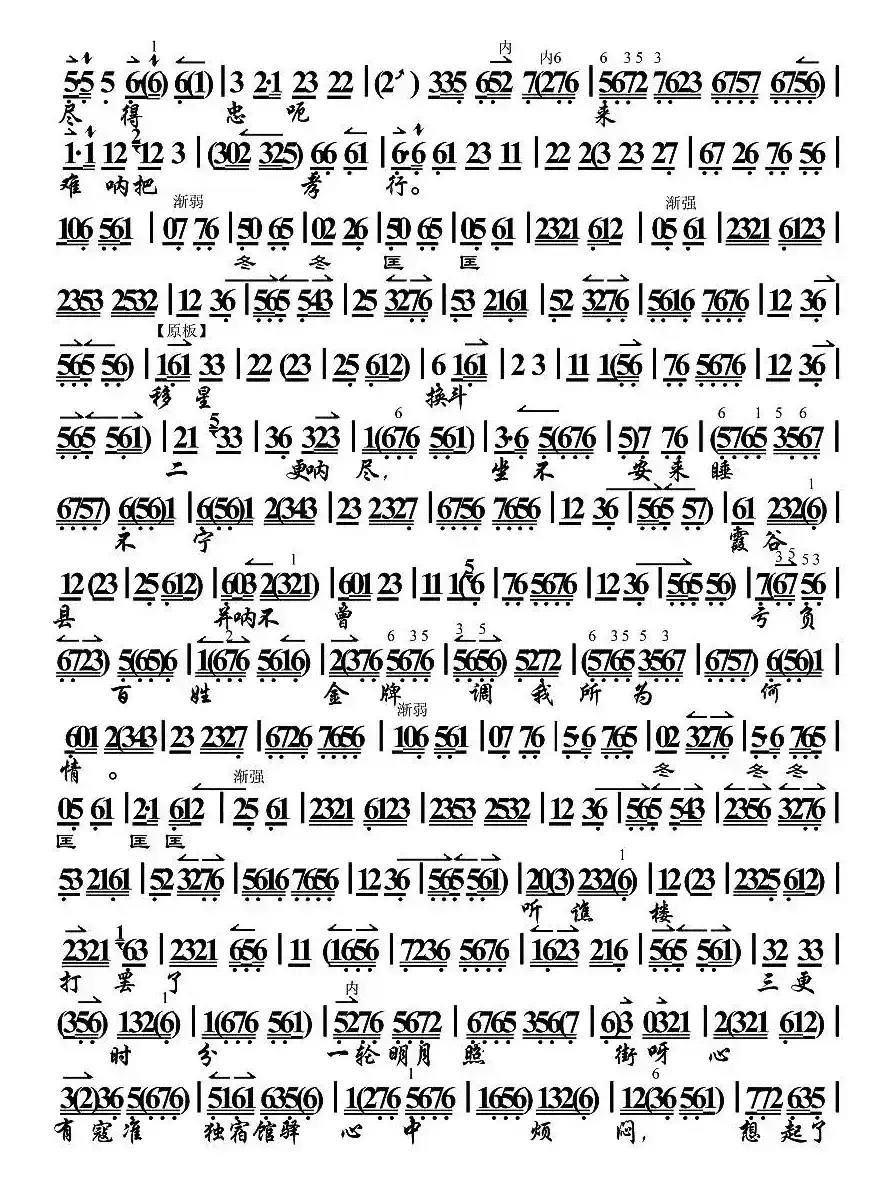 1 内 内6 6 35 3
5·5 5 6·(6) 6(1) | 3 2·1 23 22 | (2 ) 335 652 7(276 | 5672 7623 6757 6756) |
尽 得 忠 呃 来
1·1 12 2 12 3 | (302 325) 66 61 | 6·6 61 23 11 | 22 2(3 23 27 | 67 26 76 56 |
难 呐把 孝 行。
渐弱 渐强
106 561 | 07 76 | 50 65 | 02 26 | 50 65 | 05 61 | 2321 612 | 05 61 | 2321 6123 |
冬 冬 匡 匡
2353 2532 | 12 36 | 565 543 | 25 3276 | 53 2161 | 52 3276 | 5616 7676 | 12 36 |
【原板】
565 56) | 161 33 | 22 (23 | 25 612) | 6 161 | 2 3 | 11 1(56 | 76 5676 | 12 36 |
移星 换斗
6 6 1 5 6
565 561) | 21 5 33 | 36 323 | 1(676 561) | 3·6 5(676 | 5)7 76 | (5765 3567 |
二 更呐 尽, 坐 不 安 来 睡
1
6757) 6(56)1 | 6(56)1 2(343 | 23 2327 | 6756 7656 | 12 36 | 565 57) | 61 232(6) |
不 宁 霞谷
1 35 53
12 (23 | 25 612) | 603 2(321) | 601 23 | 11 1(5 6 | 76 5676 | 12 36 | 565 56) | 7(67 56 |
县 并呐不 曾 亏 负
2 6 35 3 5 6 35 5 3
6723) 5(65)6 | 1(676 5616) | 2(376 5676 | 5656) 5272 | (5765 3567 | 6757) 6(56)1 |
百 姓 金 牌 调 我 所 为 何
渐弱
601 2(343 | 23 2327 | 6726 7656 | 106 561 | 07 76 | 5·6 765 | 02 3276 | 5·6 765 |
情。 冬 冬 冬
渐强
05 61 | 2·1 612 | 25 61 | 2321 6123 | 2353 2532 | 12 36 | 565 543 | 2356 3276 |
匡 匡 匡
1
53 2161 | 52 3276 | 5616 7656 | 12 36 | 565 561) | 20(3) 232(6) | 12 (23 | 2325 612) |
听 谯 楼
2321 1 63 | 2321 656 | 11 (1656 | 7236 5676 | 1623 216 | 565 561) | 32 33 |
打 罢 了 三 更
1 内
(356) 132(6) | 1(676 561) | 5276 5672 | 6765 356(7 | 6)3 0321 | 2(321 612) |
时 分 一轮 明月 照 街呀 心
1 6
3(2)36 5(676) | 5161 635(6) | 1(276 5676 | 1656) 132(6) | 12(36 561) | 772 635 |
有 寇 准 独宿馆驿 心 中 烦 闷, 想 起了